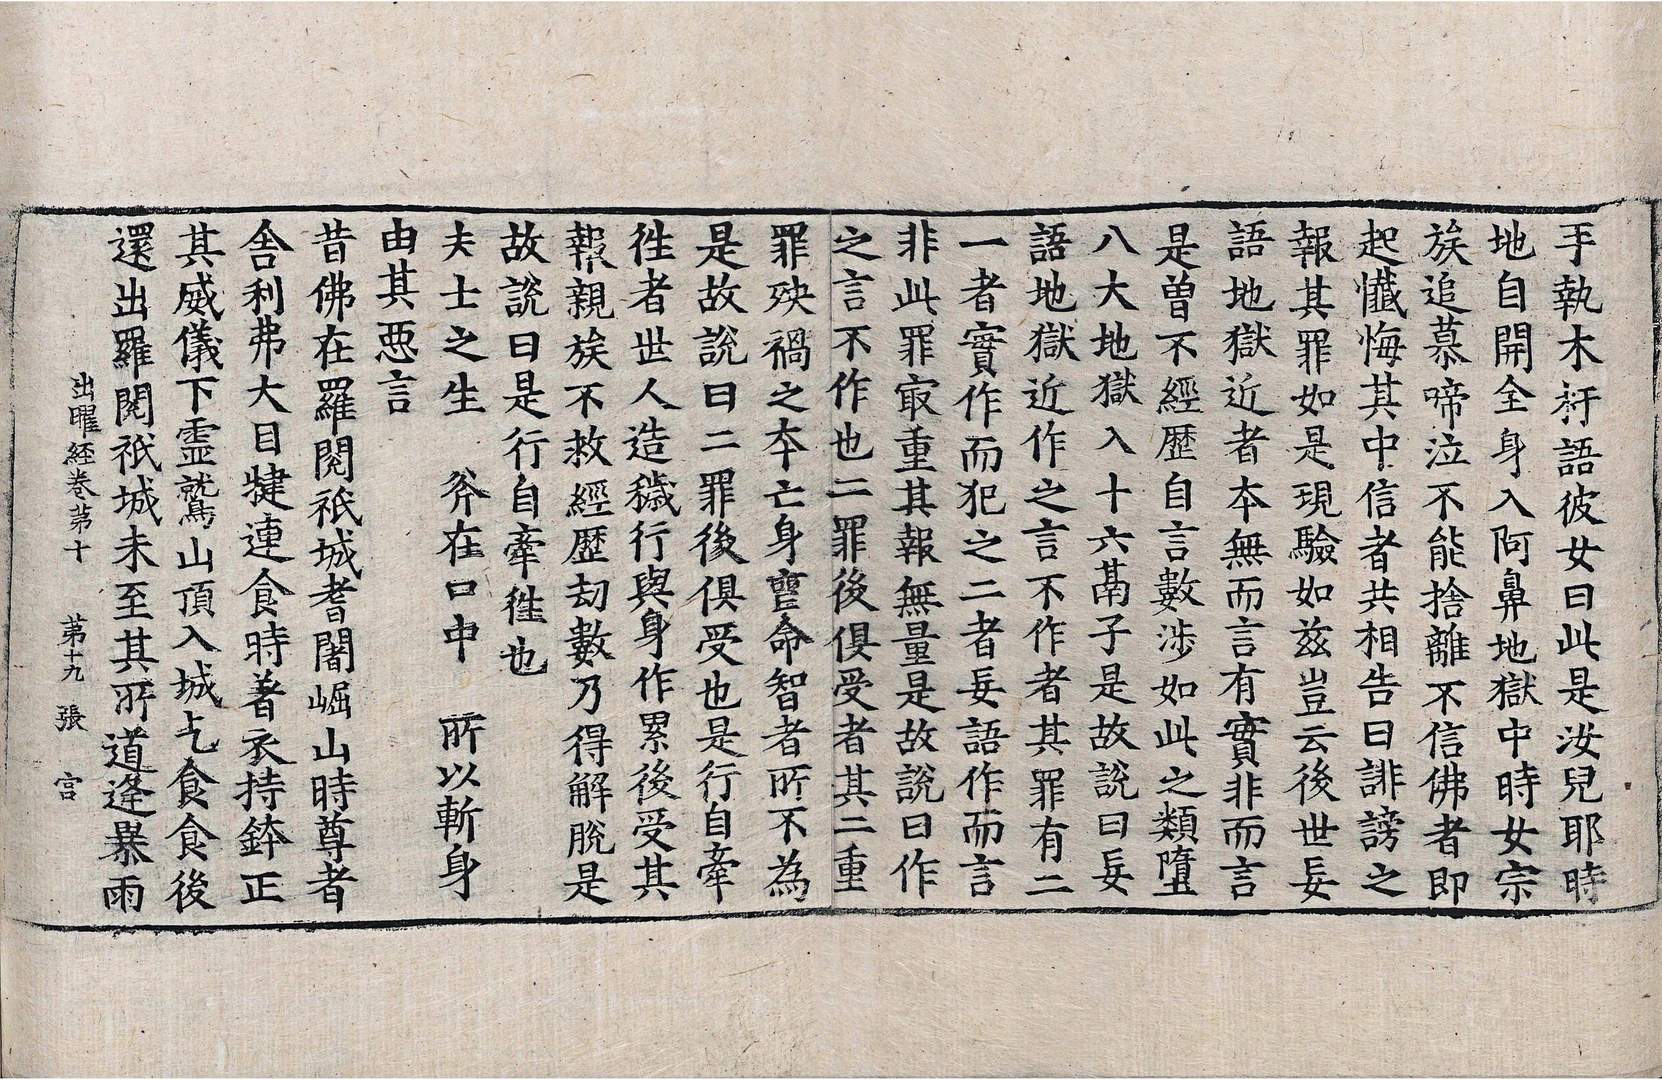 手執木杅語彼女曰此是汝兒耶時
地自開全身入阿鼻地獄中時女宗
族追慕啼泣不能捨離不信佛者即
起懺悔其中信者共相告曰誹謗之
報其罪如是現驗如茲豈云後世妄
語地獄近者本無而言有實非而言
是曾不經歷自言數涉如此之類墮
八大地獄入十六鬲子是故說曰妄
語地獄近作之言不作者其罪有二
一者實作而犯之二者妄語作而言
非此罪㝡重其報無量是故說曰作
之言不作也二罪後俱受者其二重
罪殃禍之本亡身喪命智者所不為
是故說曰二罪後俱受也是行自牽
往者世人造穢行與身作累後受其
報親族不救經歷劫數乃得解脫是
故說曰是行自牽往也
夫士之生　斧在口中　所以斬身
由其惡言
昔佛在羅閱祇城耆闍崛山時尊者
舍利弗大目揵連食時著衣持鉢正
其威儀下靈鷲山頂入城乞食食後
還出羅閱祇城未至其所道逢暴雨
出曜経卷第十　第十九　張　宫